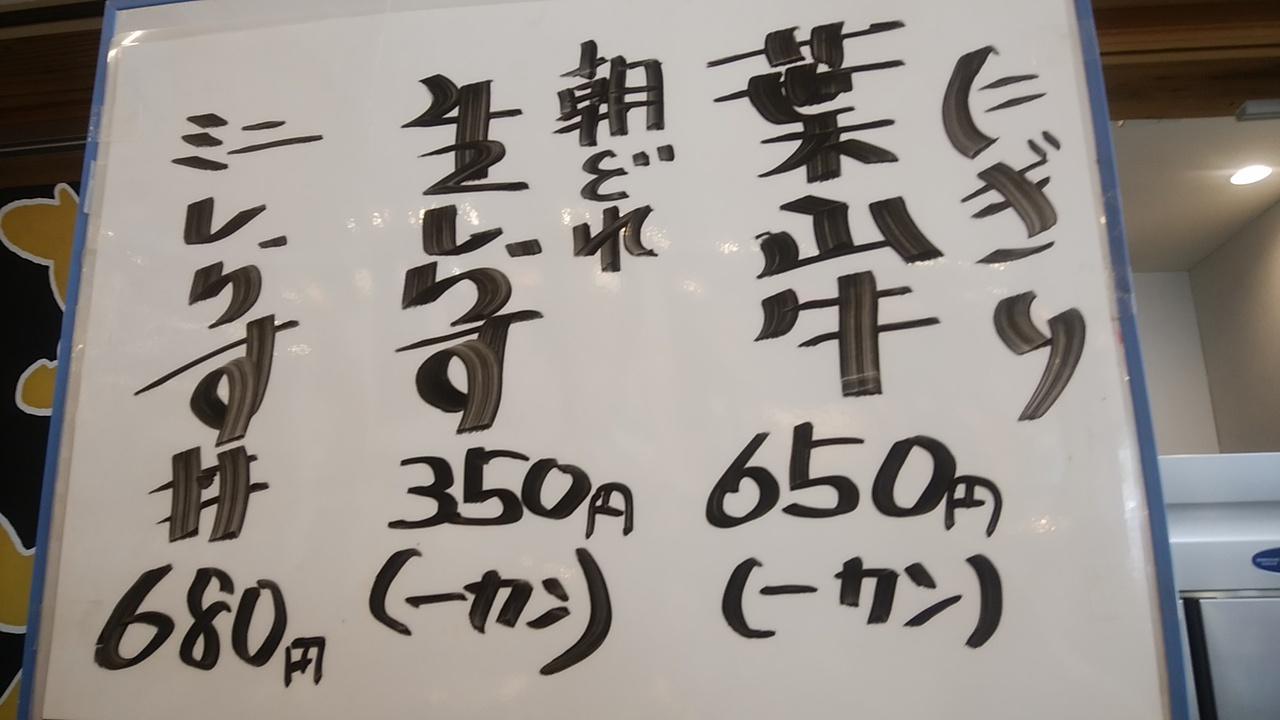 にぎり
葉山牛
650円
(一カン)
朝どれ
生しらす
350円
(一カン)
ミニしらす丼
680円